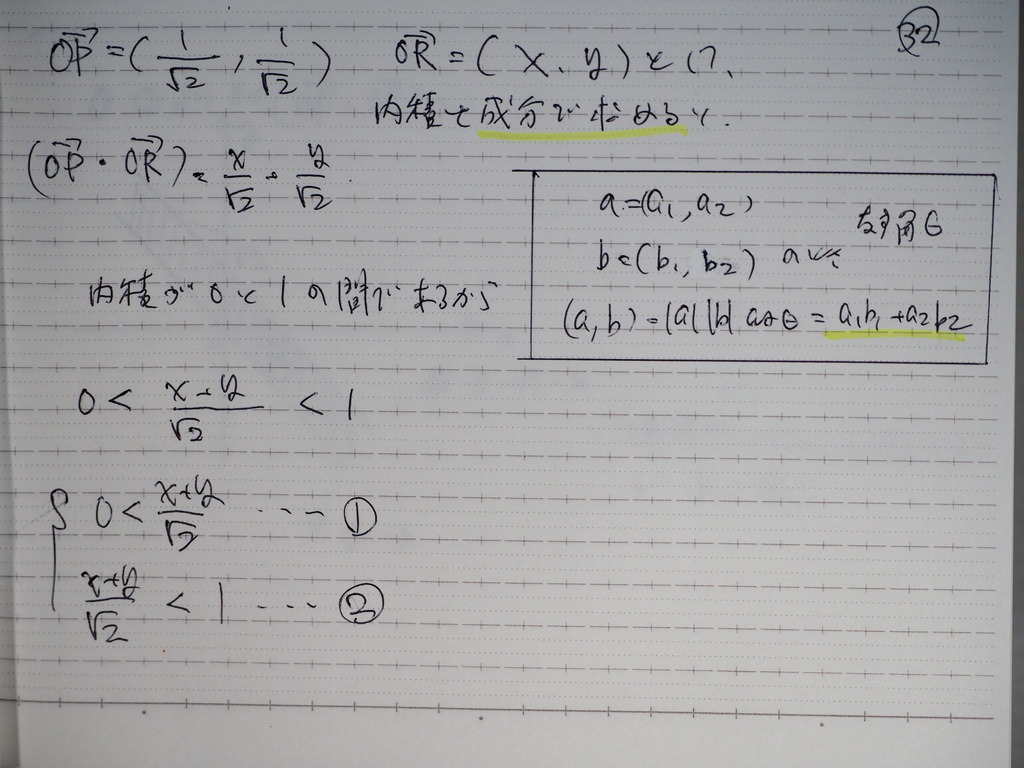 32
OP=(1/√2, 1/√2) OR=(x、y)とし?、
内積を成分で求めると、
(OP・OR)= x/√2 + y/√2
a=(a1,a2)
b=(b1,b2) a
(a,b)=|a||b|cosθ=a1b1+a2b2
なす角θ
内積が0と1の間であるから
0 < x+y/√2 < 1
0 < x+y/√2 ・・・・ ①
x+y/√2 < 1 ・・・・ ②